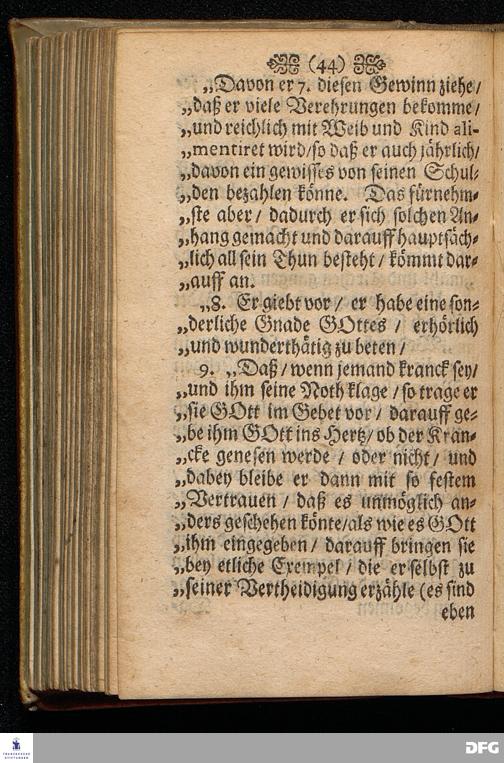 (44)
„Davon er 7. diesen Gewinn ziehe /
„daß er viele Verehrungen bekomme /
„und reichlich mit Weib und Kind ali-
„mentiret wird / so daß er auch jährlich /
„davon ein gewisses von seinen Schul-
„den bezahlen könne. Das fürnehm-
„ste aber / dadurch er sich solchen An-
„hang gemacht und darauff hauptsäch-
„lich all sein Thun besteht / kömmt dar-
„auff an.
„8. Er giebt vor / er habe eine son-
„derliche Gnade GOttes / erhörlich
„und wunderthätig zu beten /
9. „Daß / wenn jemand kranck sey /
„und ihm seine Noth klage / so trage er
„sie GOtt im Gebet vor / darauff ge-
„be ihm GOtt ins Hertz / ob der Kran-
„cke genesen werde / oder nicht / und
„dabey bleibe er dann mit so festem
„Vertrauen / daß es unmöglich an-
„ders geschehen könte / als wie es GOtt
„ihm eingegeben / darauff bringen sie
„bey etliche Exempel / die er selbst zu
„seiner Vertheidigung erzähle (es sind
eben
FRANCKESCHE
STIFTUNGEN
DFG